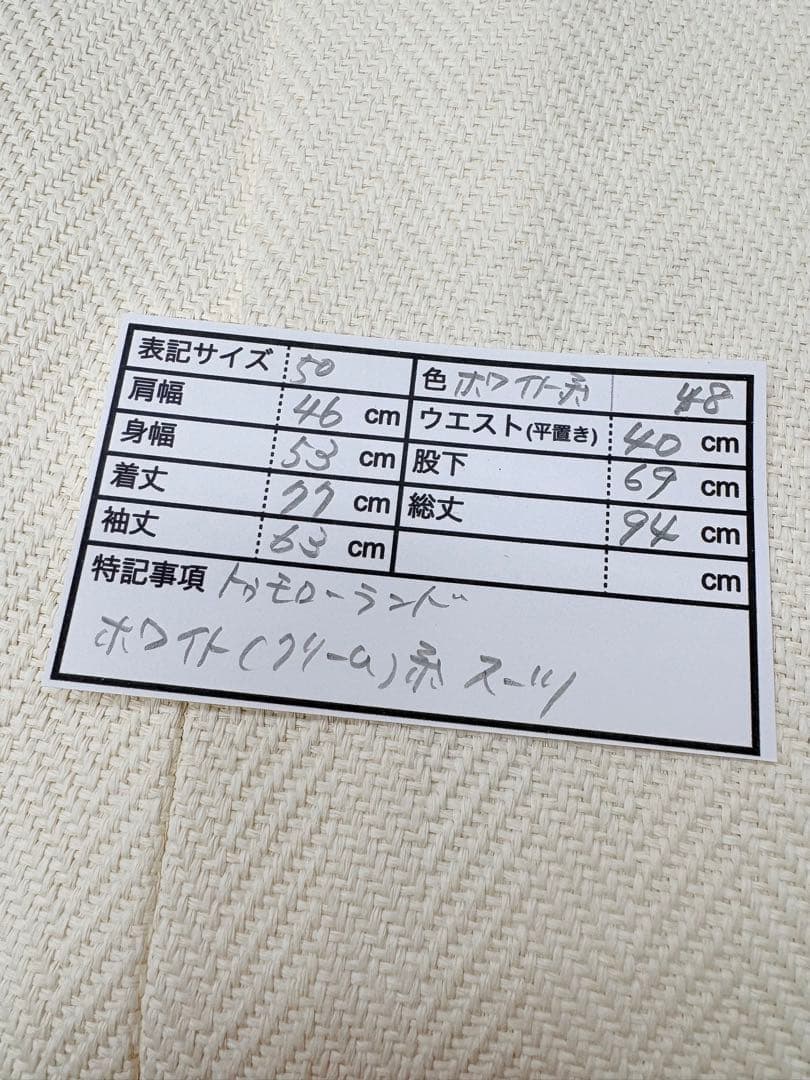 表記サイズ 50 色 ホワイト系 48
肩幅 46 cm ウエスト(平置き) 40 cm
身幅 53 cm 股下 69 cm
着丈 77 cm 総丈 94 cm
袖丈 63 cm cm
特記事項 トゥモローランド
ホワイト(クリーム)系 スーツ